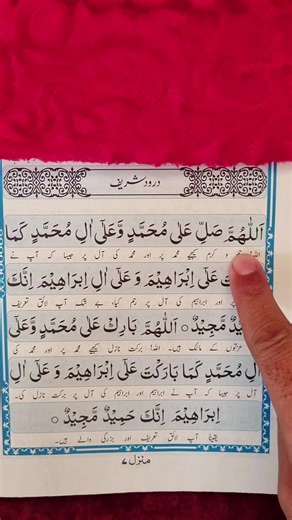 درود شریف
اَللّٰهُمَّ صَلِّ عَلٰی مُحَمَّدٍ وَّعَلٰٓی اٰلِ مُحَمَّدٍ کَمَا
کرم کیجیے محمد پر اور محمد کی آل پر جیسا کہ آپ نے
عَلٰٓی اِبْرَاهِیْمَ وَ عَلٰٓی اٰلِ اِبْرَاهِیْمَ اِنَّكَ
اور ابراہیم کی آل پر رحم کیا، بے شک آپ لائق تعریف
مَّجِیْدٌ ○ اَللّٰهُمَّ بَارِكْ عَلٰی مُحَمَّدٍ وَّعَلٰٓی
کے مالک ہیں۔ اللہ! برکت نازل کیجیے محمد پر اور محمد کی
اٰلِ مُحَمَّدٍ کَمَا بَارَکْتَ عَلٰٓی اِبْرَاهِیْمَ وَ عَلٰٓی اٰلِ
آل پر جیسا کہ آپ نے ابراہیم اور ابراہیم کی آل پر برکت نازل کی۔
اِبْرَاهِیْمَ اِنَّكَ حَمِیْدٌ مَّجِیْدٌ ○
یقیناً آپ لائق تعریف اور بزرگی والے ہیں۔
منزل ۷